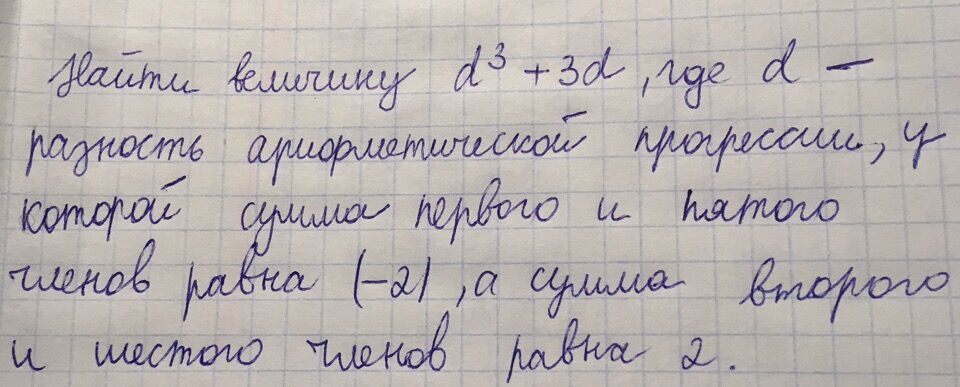 Найти величину d³ + 3d, где d —
разность арифметической прогрессии, у
которой сумма первого и пятого
членов равна (-2), а сумма второго
и шестого членов равна 2.